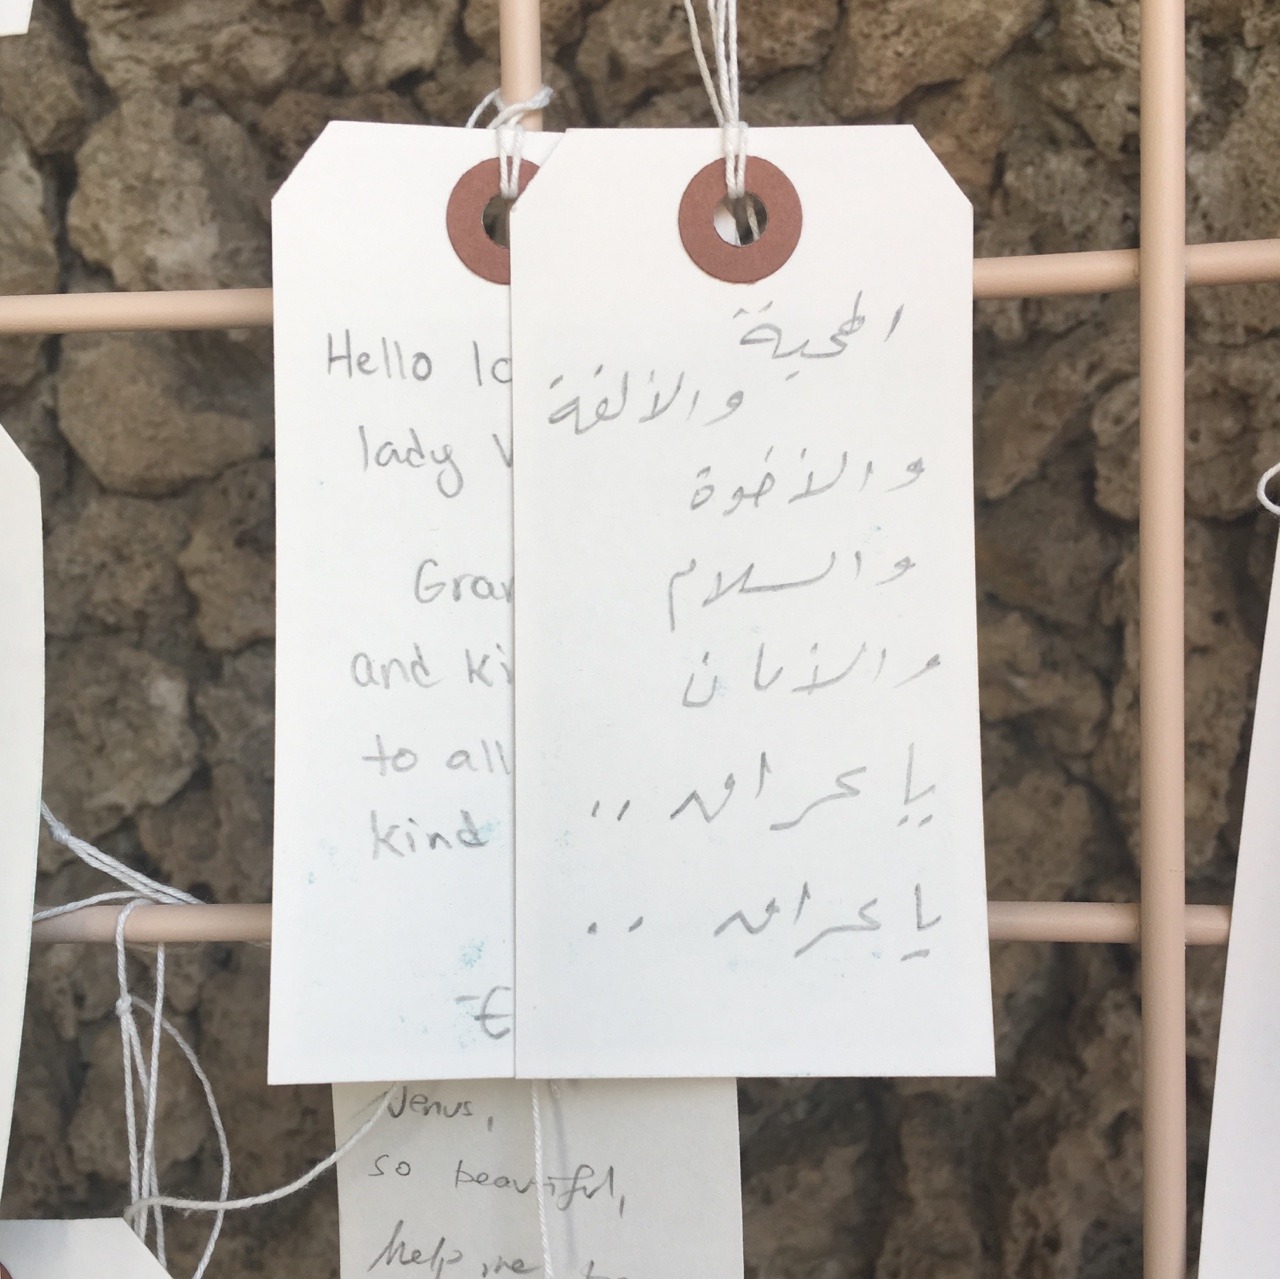 Hello
lady
and
to all
kind
المحبة
والألفة
والأخوة
والسلام
والأمان
يا عراق ..
يا عراق ..
Venus,
so beautiful,
help me